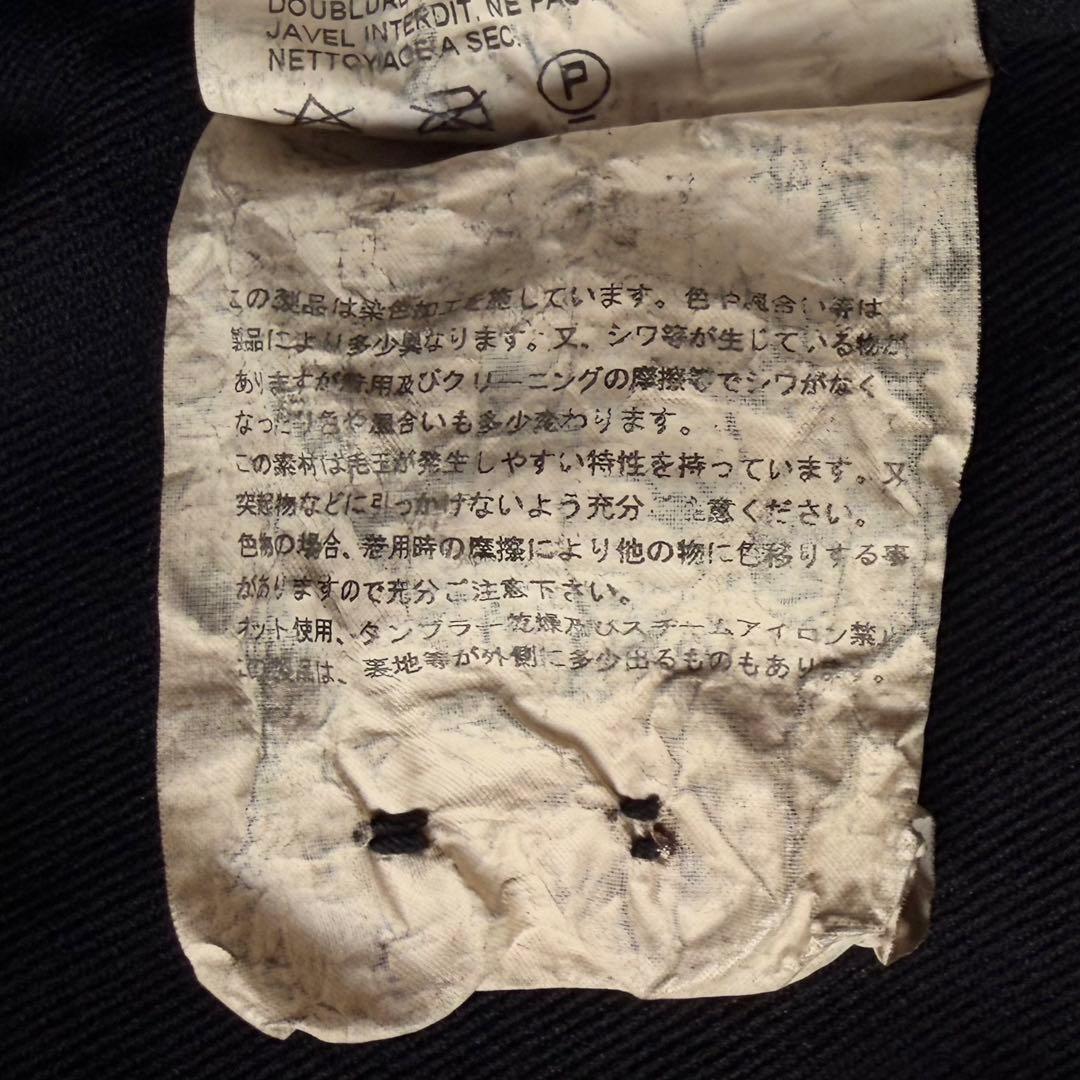 DOUBLURE
JAVEL INTERDIT. NE PAS
NETTOYAGE A SEC.
P
この製品は染色加工を施しています。色や風合い等は
製品により多少異なります。又、シワ等が生じている物が
ありますが着用及びクリーニングの摩擦等でシワがなく
なったり色や風合いも多少変わります。
この素材は毛玉が発生しやすい特性を持っています。又
突起物などに引っかけないよう充分 注意ください。
色物の場合、着用時の摩擦により他の物に色移りする事
がありますので充分ご注意下さい。
ネット使用、タンブラー乾燥及びスチームアイロン禁
この製品は、裏地等が外側に多少出るものもあります。